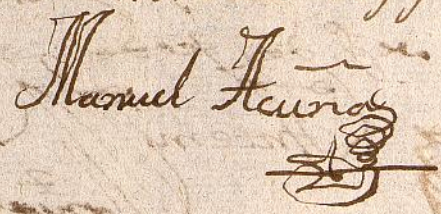 Manuel Acuña